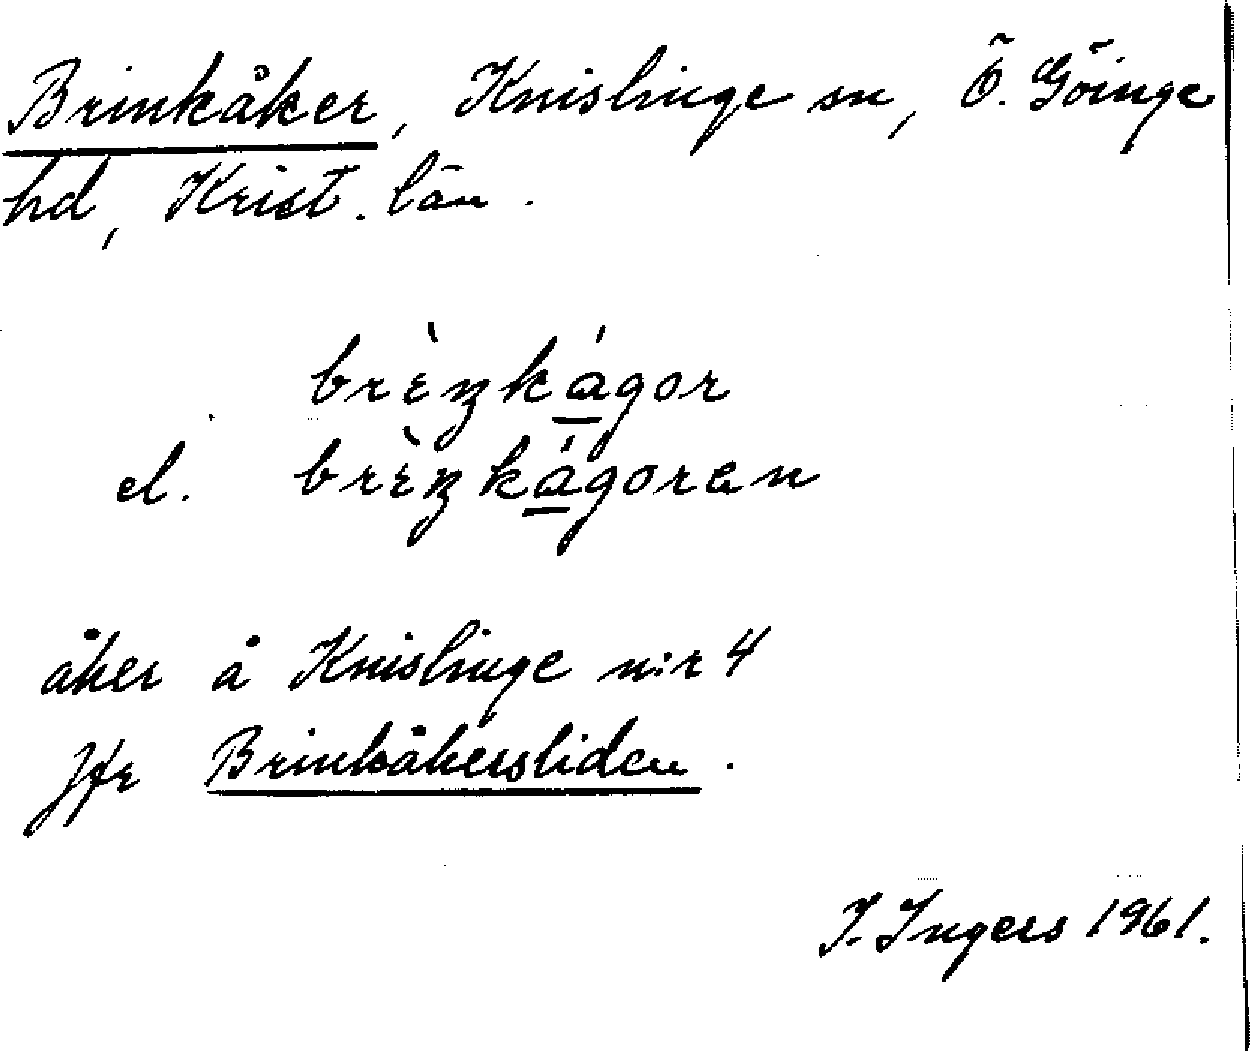 Brinkåker, Knislinge sn, Ö. Göinge
hd, Krist. län.
brèŋkágor
el. brèŋkágoren
åker å Knislinge n:r 4
Jfr Brinkåkersliden.
I. Ingers 1961.